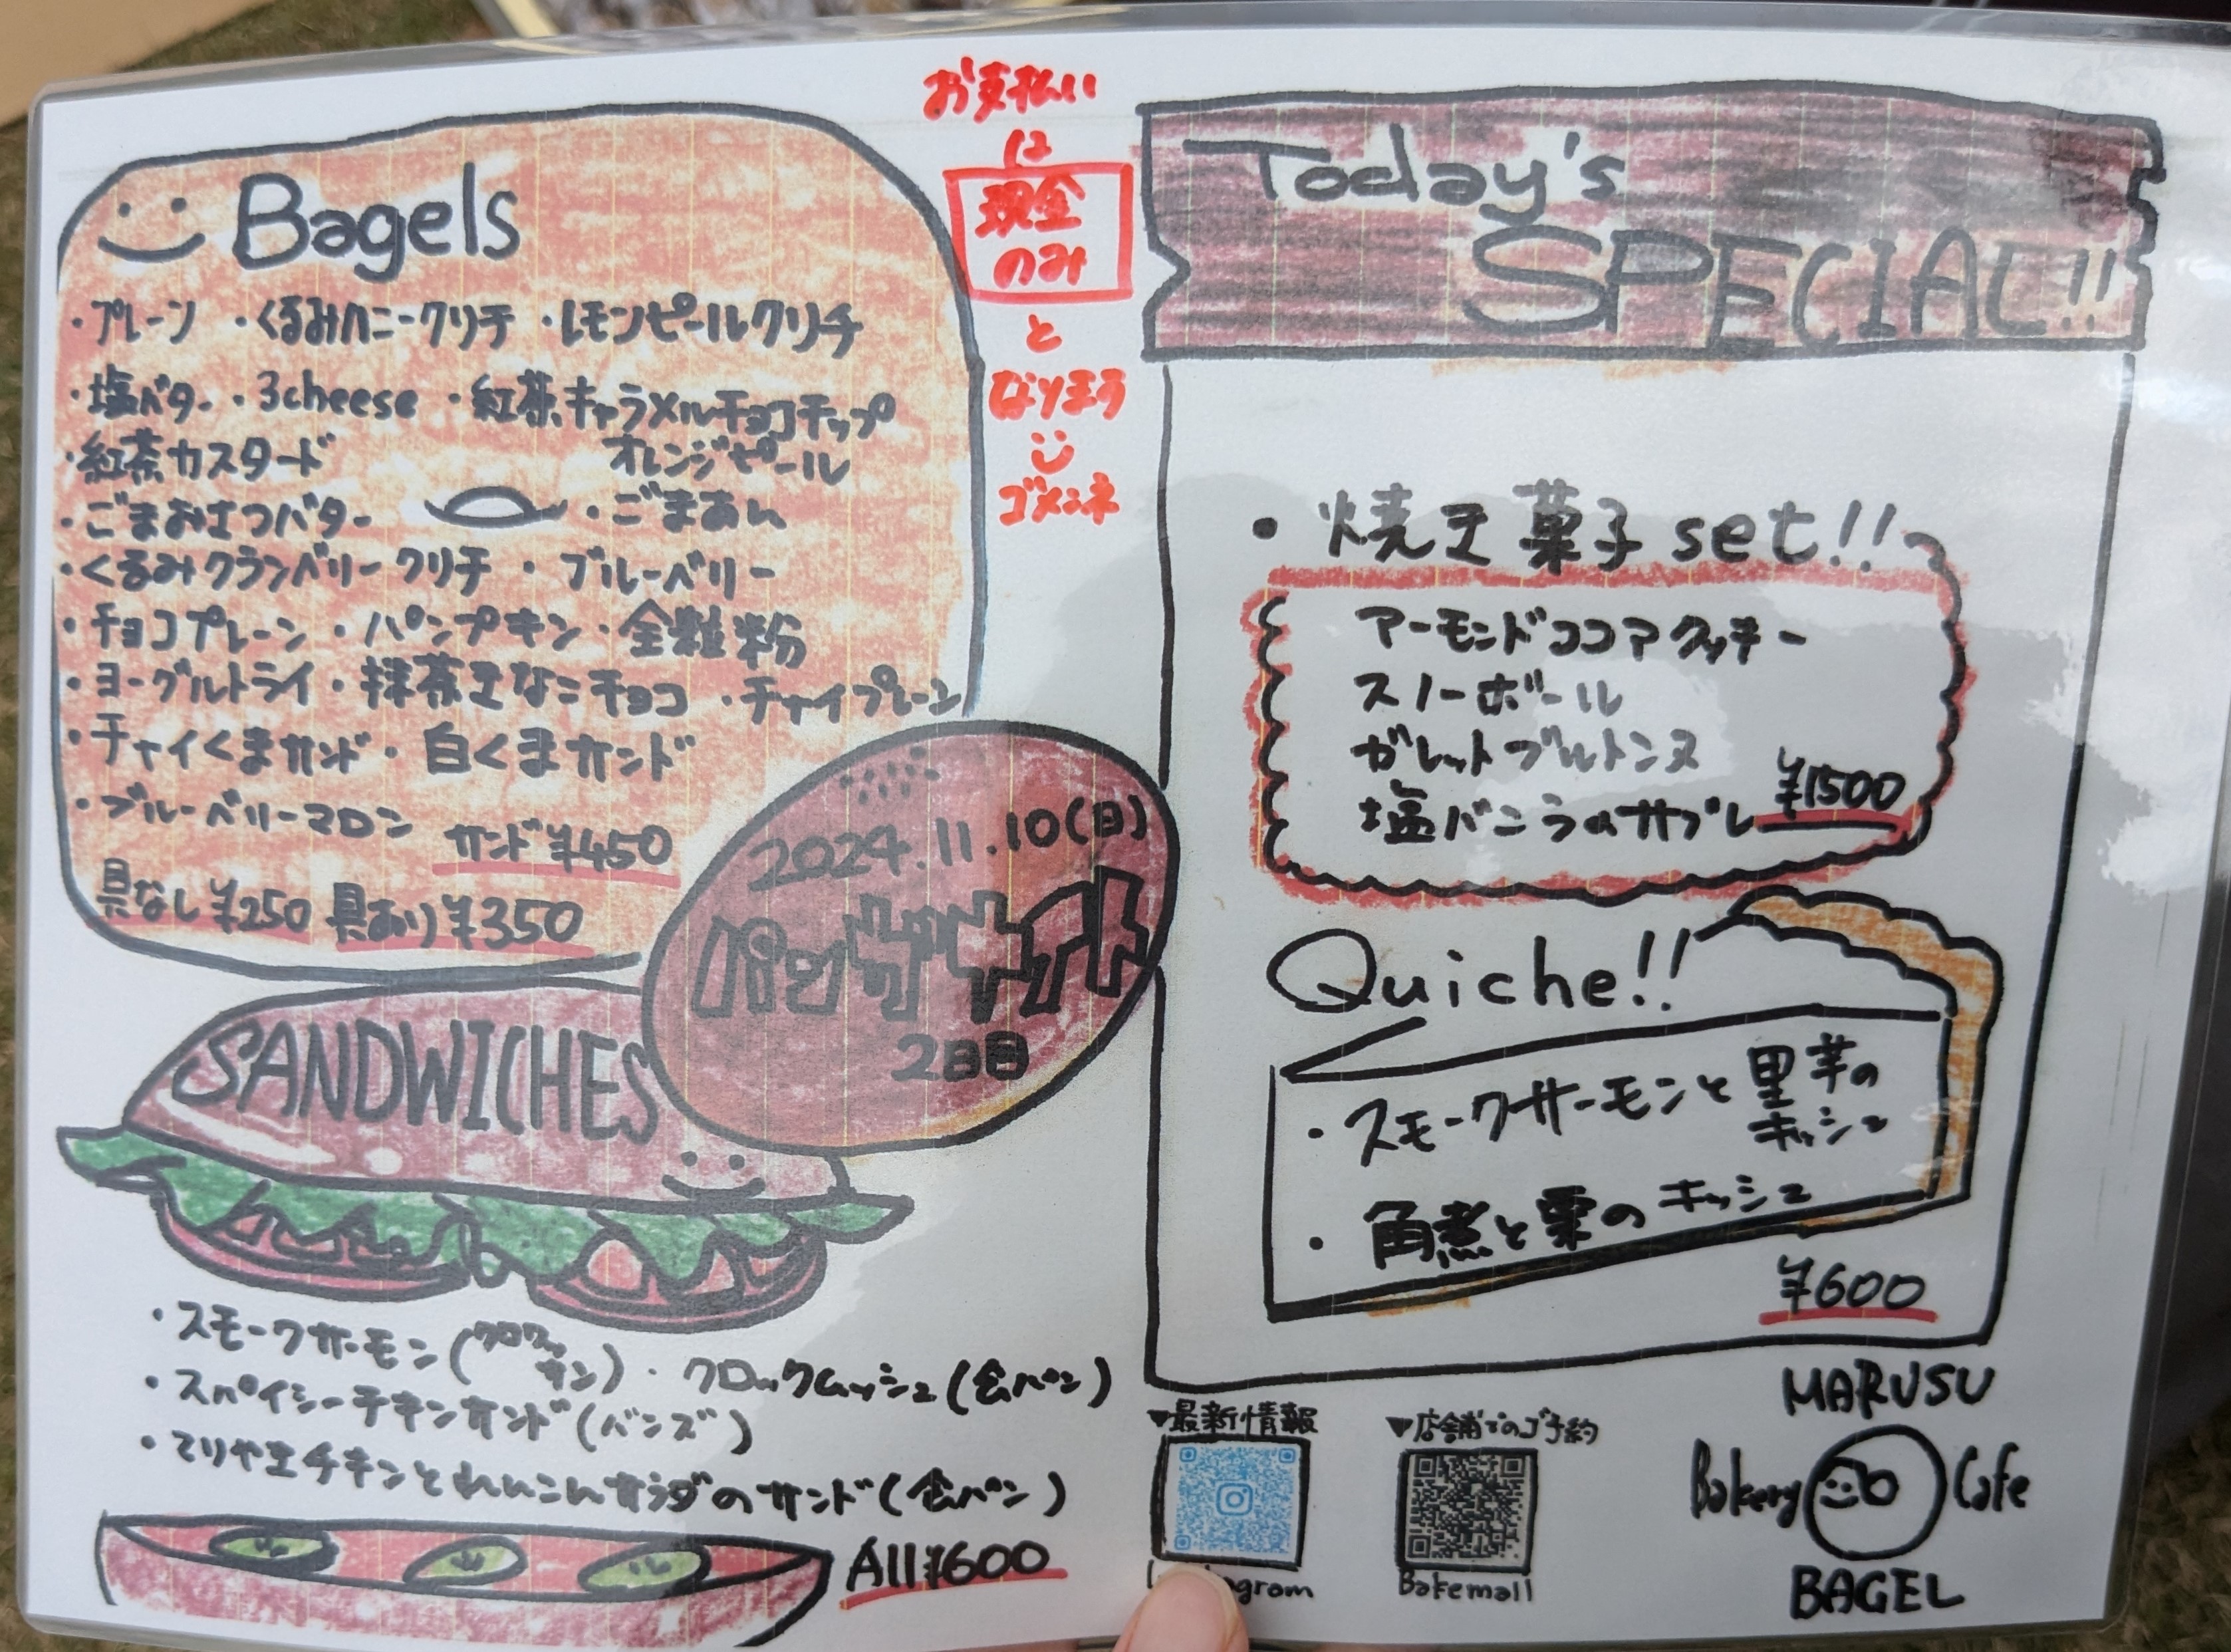 Bagels
・プレーン ・くるみハニークリチ ・レモンピールクリチ
・塩バター ・3cheese ・紅茶キャラメルチョコチップ
オレンジピール
・紅茶カスタード
・ごまおさつバター ・ごまあん
・くるみクランベリークリチ ・ブルーベリー
・チョコプレーン ・パンプキン ・全粒粉
・ヨーグルトライ ・抹茶きなこチョコ ・チャイプレーン
・チャイくまサンド ・白くまサンド
・ブルーベリーマロン
サンド¥450
具なし¥250 具あり¥350
お支払い
は
現金
のみ
と
なります
ゴメンネ
2024.11.10(日)
パンザナイト
2日目
SANDWICHES
・スモークサーモン(クロワッサン) ・クロックムッシュ(食パン)
・スパイシーチキンサンド(バンズ)
・てりやきチキンとれんこんサラダのサンド(食パン)
All¥600
Today's
SPECIAL!!
・焼き菓子set!!
アーモンドココアクッキー
スノーボール
ガレットブルトンヌ
塩バニラのサブレ
¥1500
Quiche!!
・スモークサーモンと里芋の
キッシュ
・角煮と栗のキッシュ
¥600
▼最新情報
▼店舗でのご予約
Bakemall
MARUSU
Bakery Cafe
BAGEL